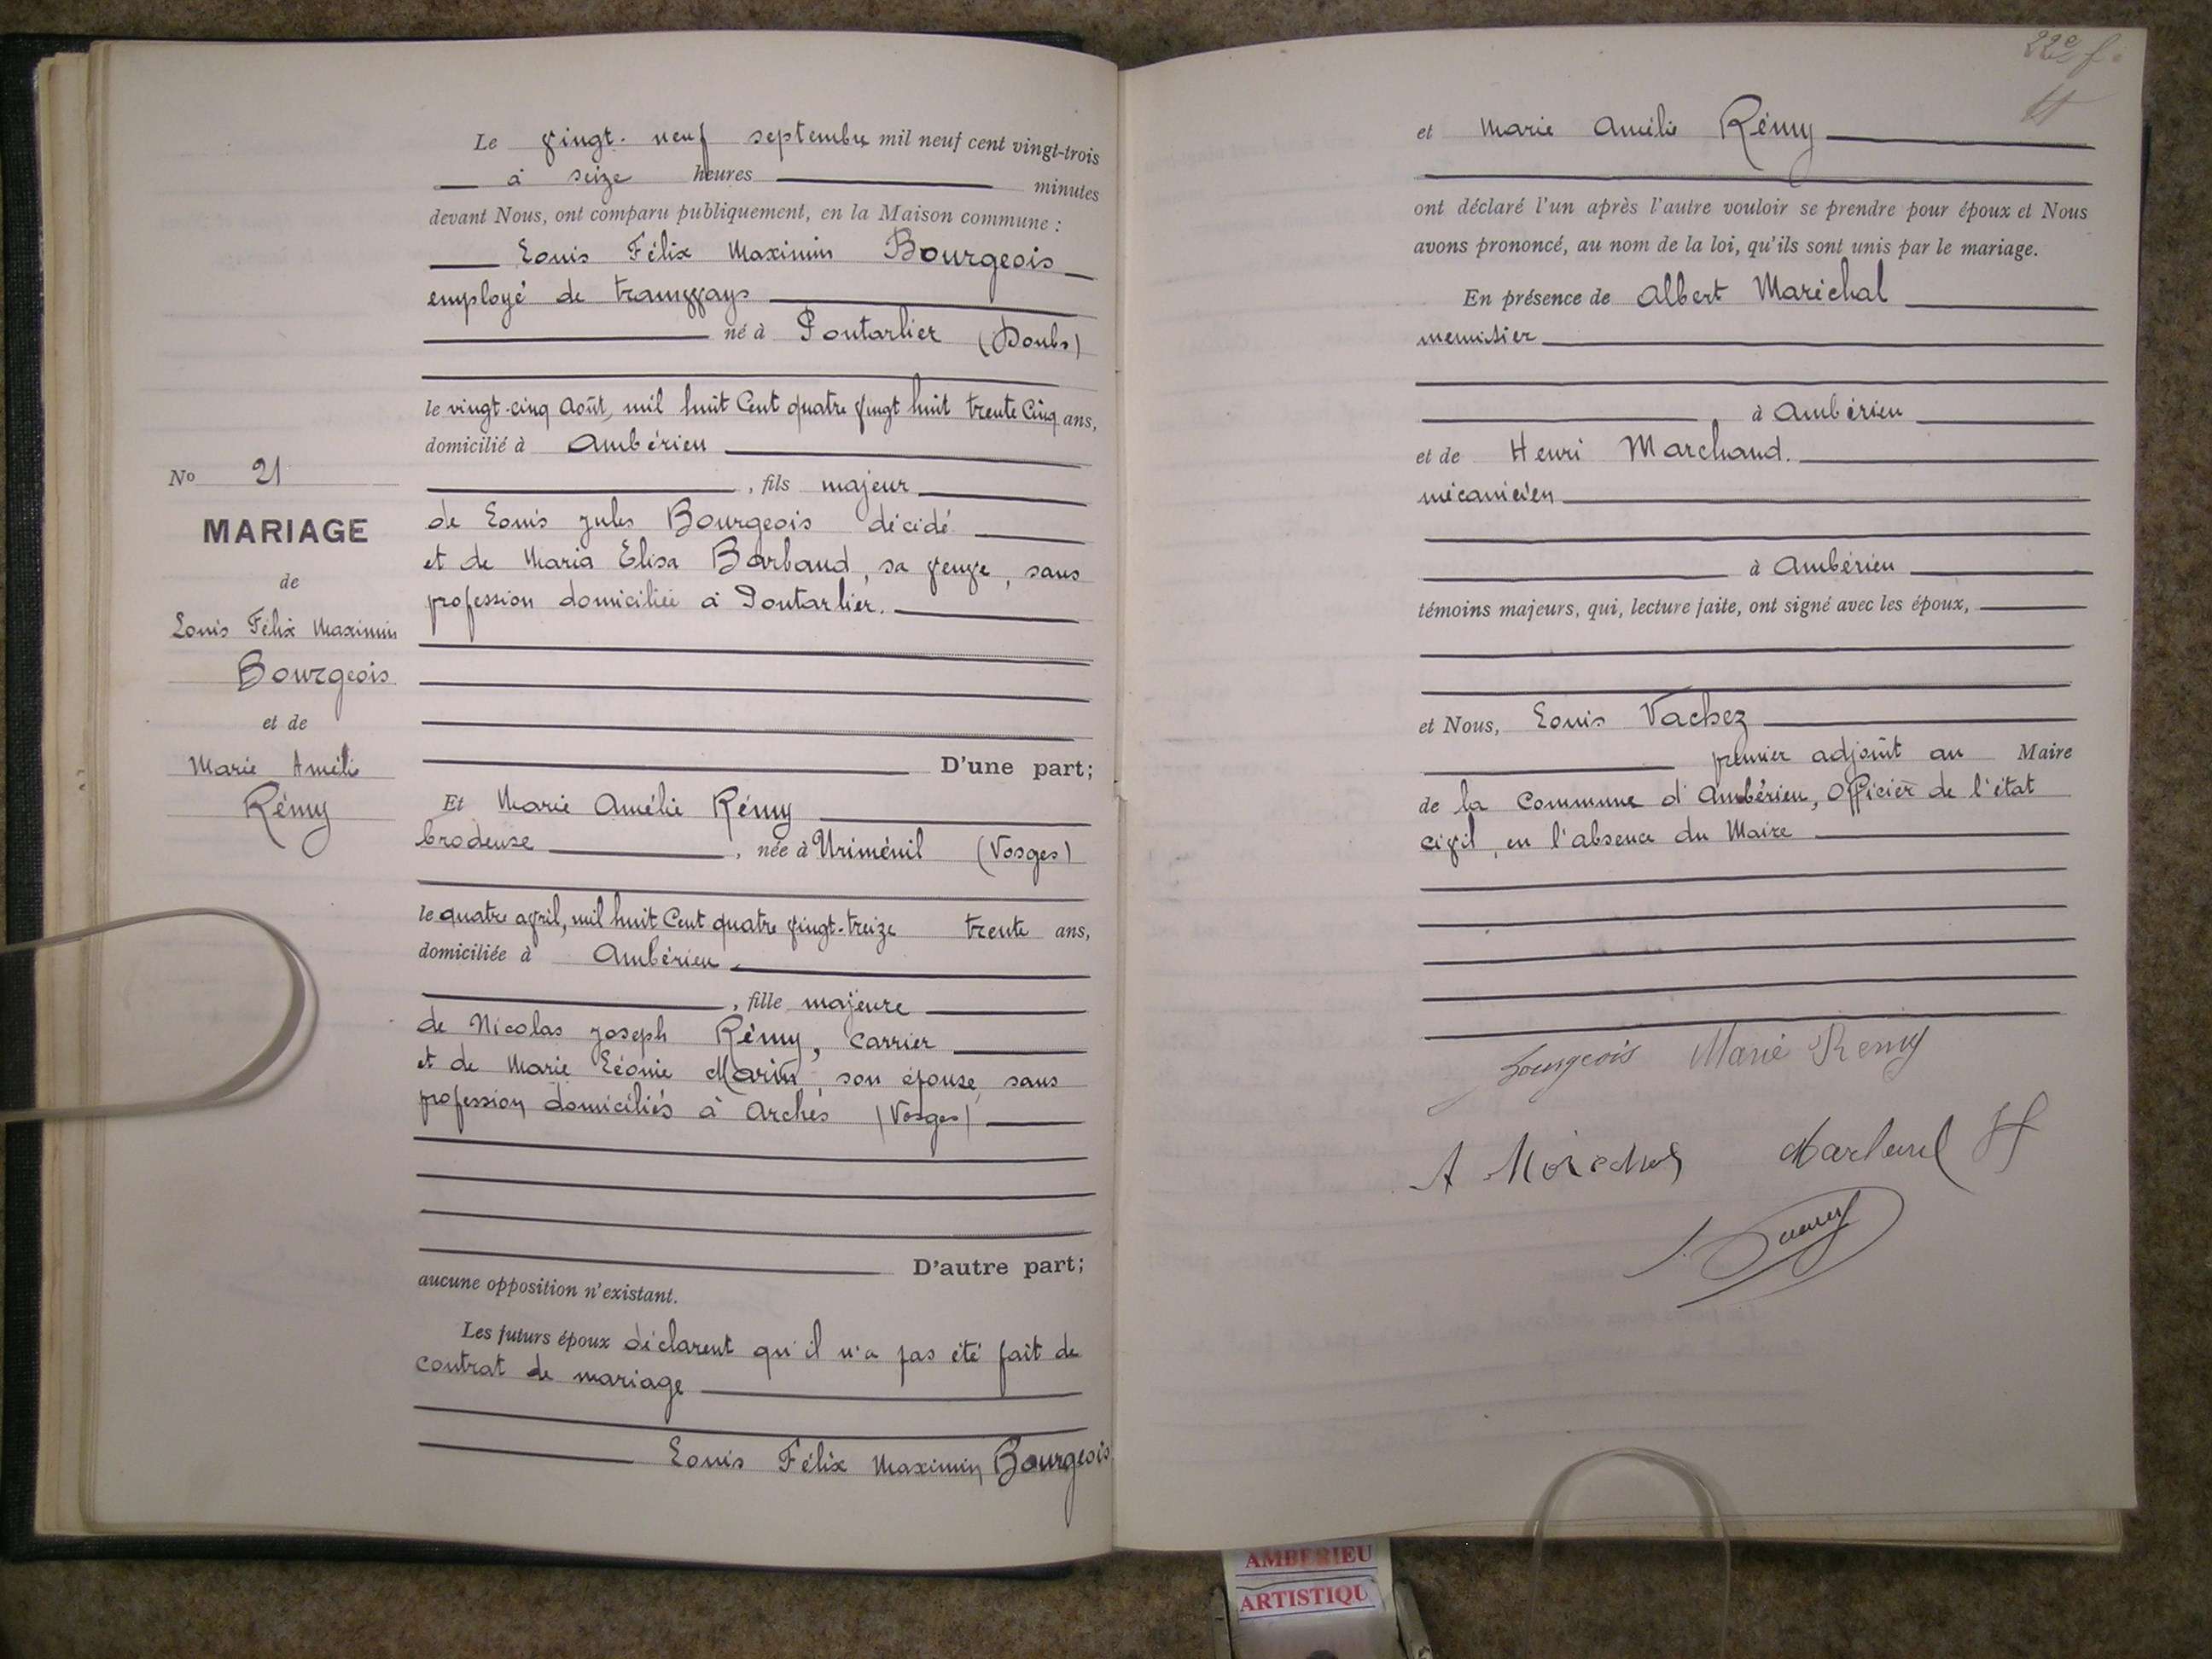 Le vingt-neuf septembre mil neuf cent vingt-trois
à seize heures minutes
devant Nous, ont comparu publiquement, en la Maison commune :
Louis Félix Maximin Bourgeois
employé de tramways
né à Pontarlier (Doubs)
le vingt-cinq Août, mil huit Cent quatre vingt huit trente Cinq ans,
domicilié à Ambérieu
, fils majeur
de Louis Jules Bourgeois décédé
et de Maria Elisa Barbaud, sa veuve, sans
profession domiciliée à Pontarlier.
D'une part;
Et Marie Amélie Rémy
brodeuse , née à Uriménil (Vosges)
le quatre avril, mil huit Cent quatre vingt-treize trente ans,
domiciliée à Ambérieu
, fille majeure
de Nicolas Joseph Rémy, carrier
et de Marie Léonie Marin, son épouse, sans
profession domiciliés à Arches (Vosges)
D'autre part;
aucune opposition n'existant.
Les futurs époux déclarent qu'il n'a pas été fait de
contrat de mariage
Louis Félix Maximin Bourgeois
No 21
MARIAGE
de
Louis Félix Maximin
Bourgeois
et de
Marie Amélie
Rémy
22e f.
et Marie Amélie Rémy
ont déclaré l'un après l'autre vouloir se prendre pour époux et Nous
avons prononcé, au nom de la loi, qu'ils sont unis par le mariage.
En présence de Albert Maréchal
menuisier
à Ambérieu
et de Henri Marchand.
mécanicien
à Ambérieu
témoins majeurs, qui, lecture faite, ont signé avec les époux,
et Nous, Louis Vachez
premier adjoint au Maire
de la Commune d'Ambérieu, Officier de l'état
civil, en l'absence du Maire
Bourgeois Marie Remy
A Maréchal Marchand H
AMBERIEU
ARTISTIQU